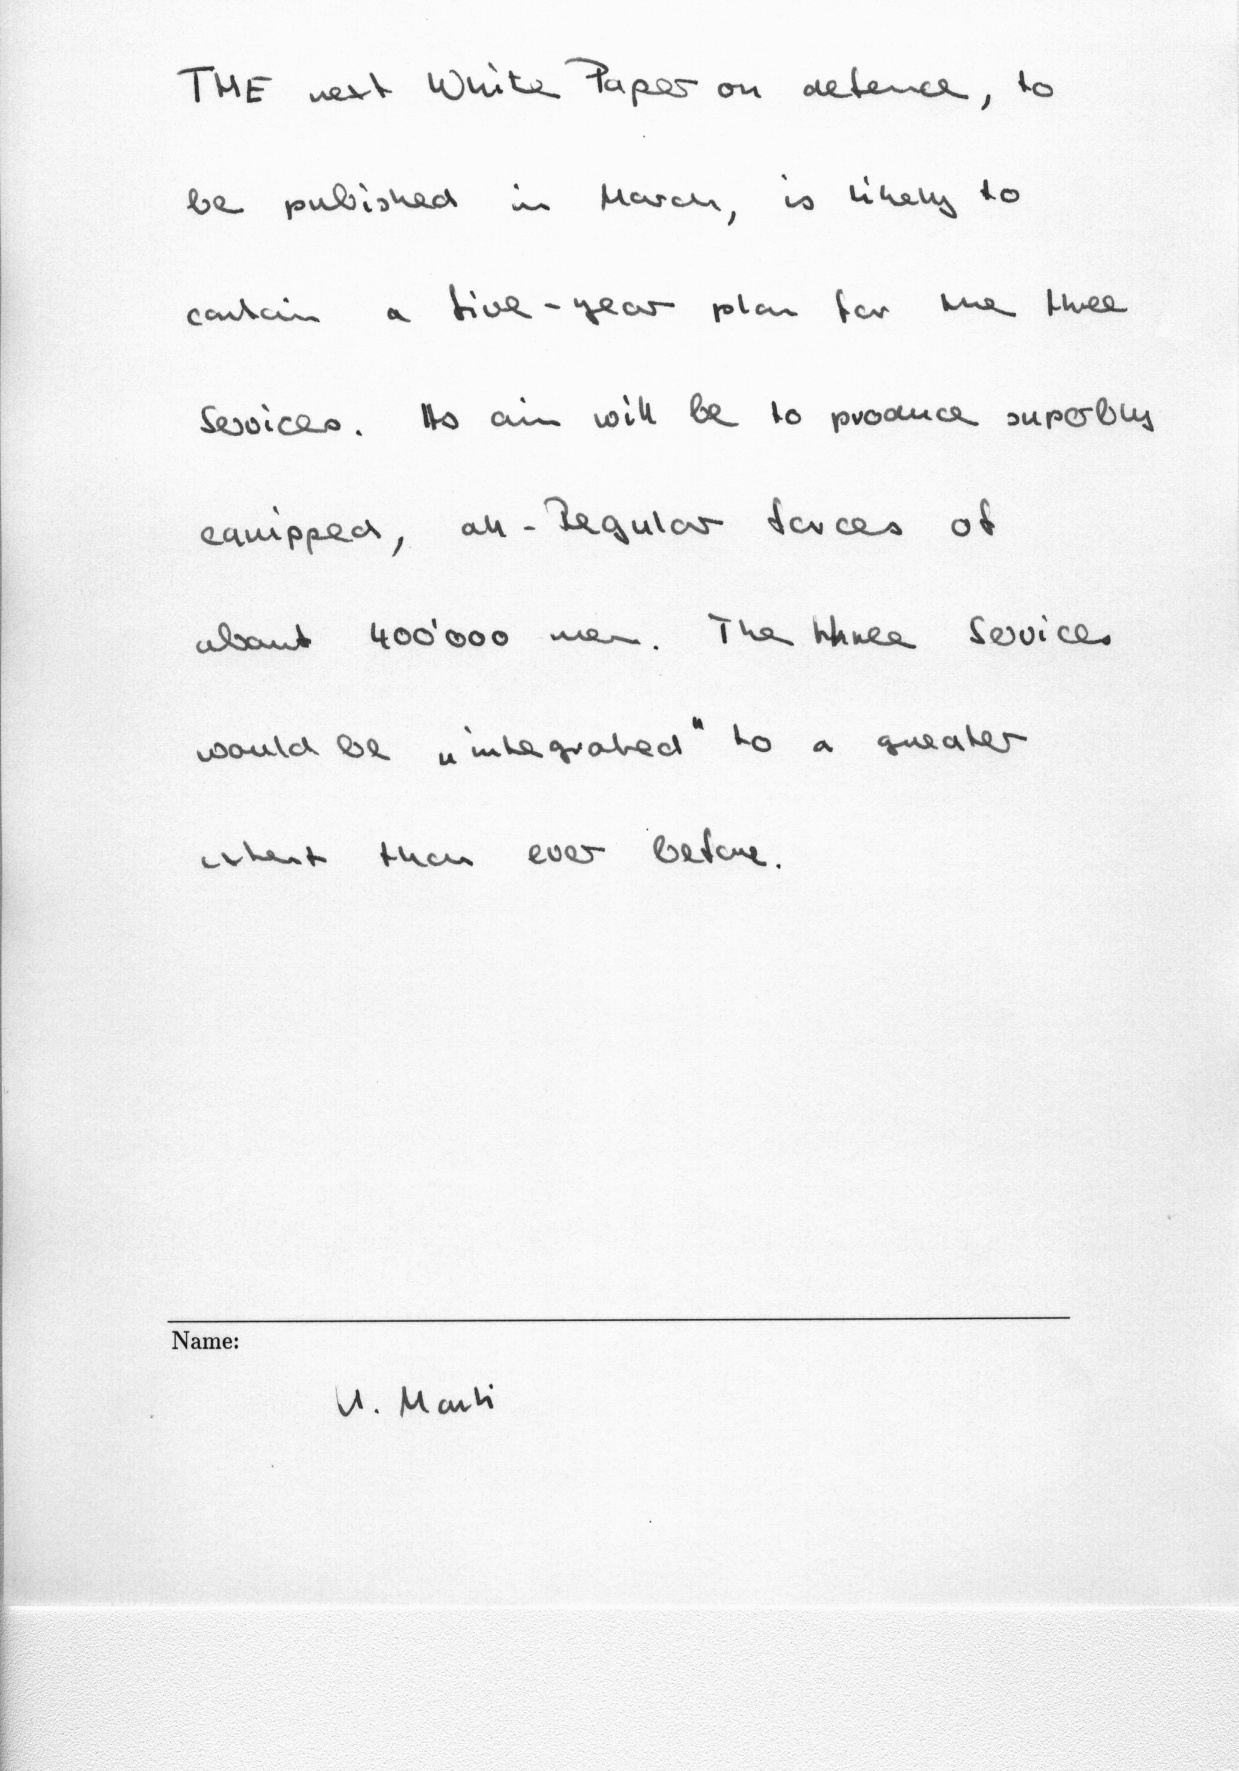 THE next White Paper on defence, to
be pubished in March, is likely to
contain a five-year plan for the three
Services. Its aim will be to produce superbly
equipped, all-Regular forces of
about 400'000 men. The three Services
would be „integrated" to a greater
extent than ever before.
Name:
U. Marti